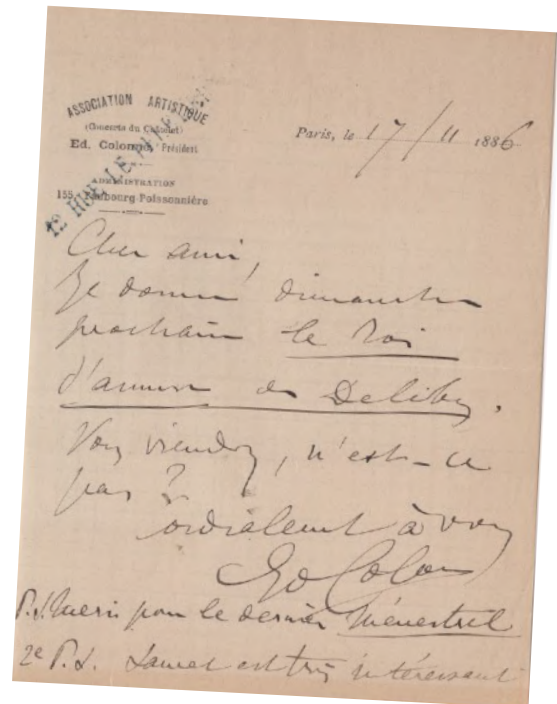 ASSOCIATION ARTISTIQUE
(Concerts du Châtelet)
Ed. Colonne, Président
ADMINISTRATION
155, Faubourg-Poissonnière
12 RUE LE
Paris, le 17/11 1886
Cher ami,
Je donne dimanche
prochain le Roi
s'amuse de Delibes.
Vous viendrez, n'est-ce
pas ?
Cordialement à vous
Ed Colonne
P.S. Merci pour le dernier Ménestrel
2e P.S. est très intéressant